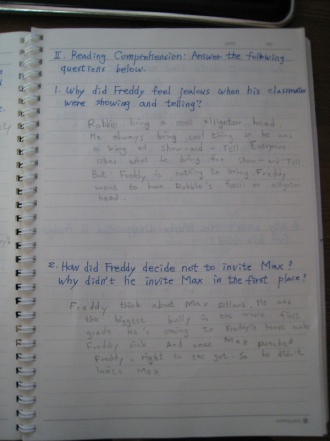 II. Reading Comprehension: Answer the following
questions below.
1. Why did Freddy feel jealous when his classmates
were showing and telling?
Robbie bring a cool alligator head
He always bring cool thing
bring at show-and-Tell. Everyone
likes what he bring for show-and-Tell
But Freddy is nothing to bring. Freddy
want to have Robbie's fossil or alligator
head.
2. How did Freddy decide not to invite Max?
Why didn't he invite Max in the first place?
Freddy think about Max sellows. He was
the biggest bully in the whole first
grade. He's coming to Freddy's house make
Freddy sick. And once Max punched
Freddy right in the gut. So he didn't
invite Max